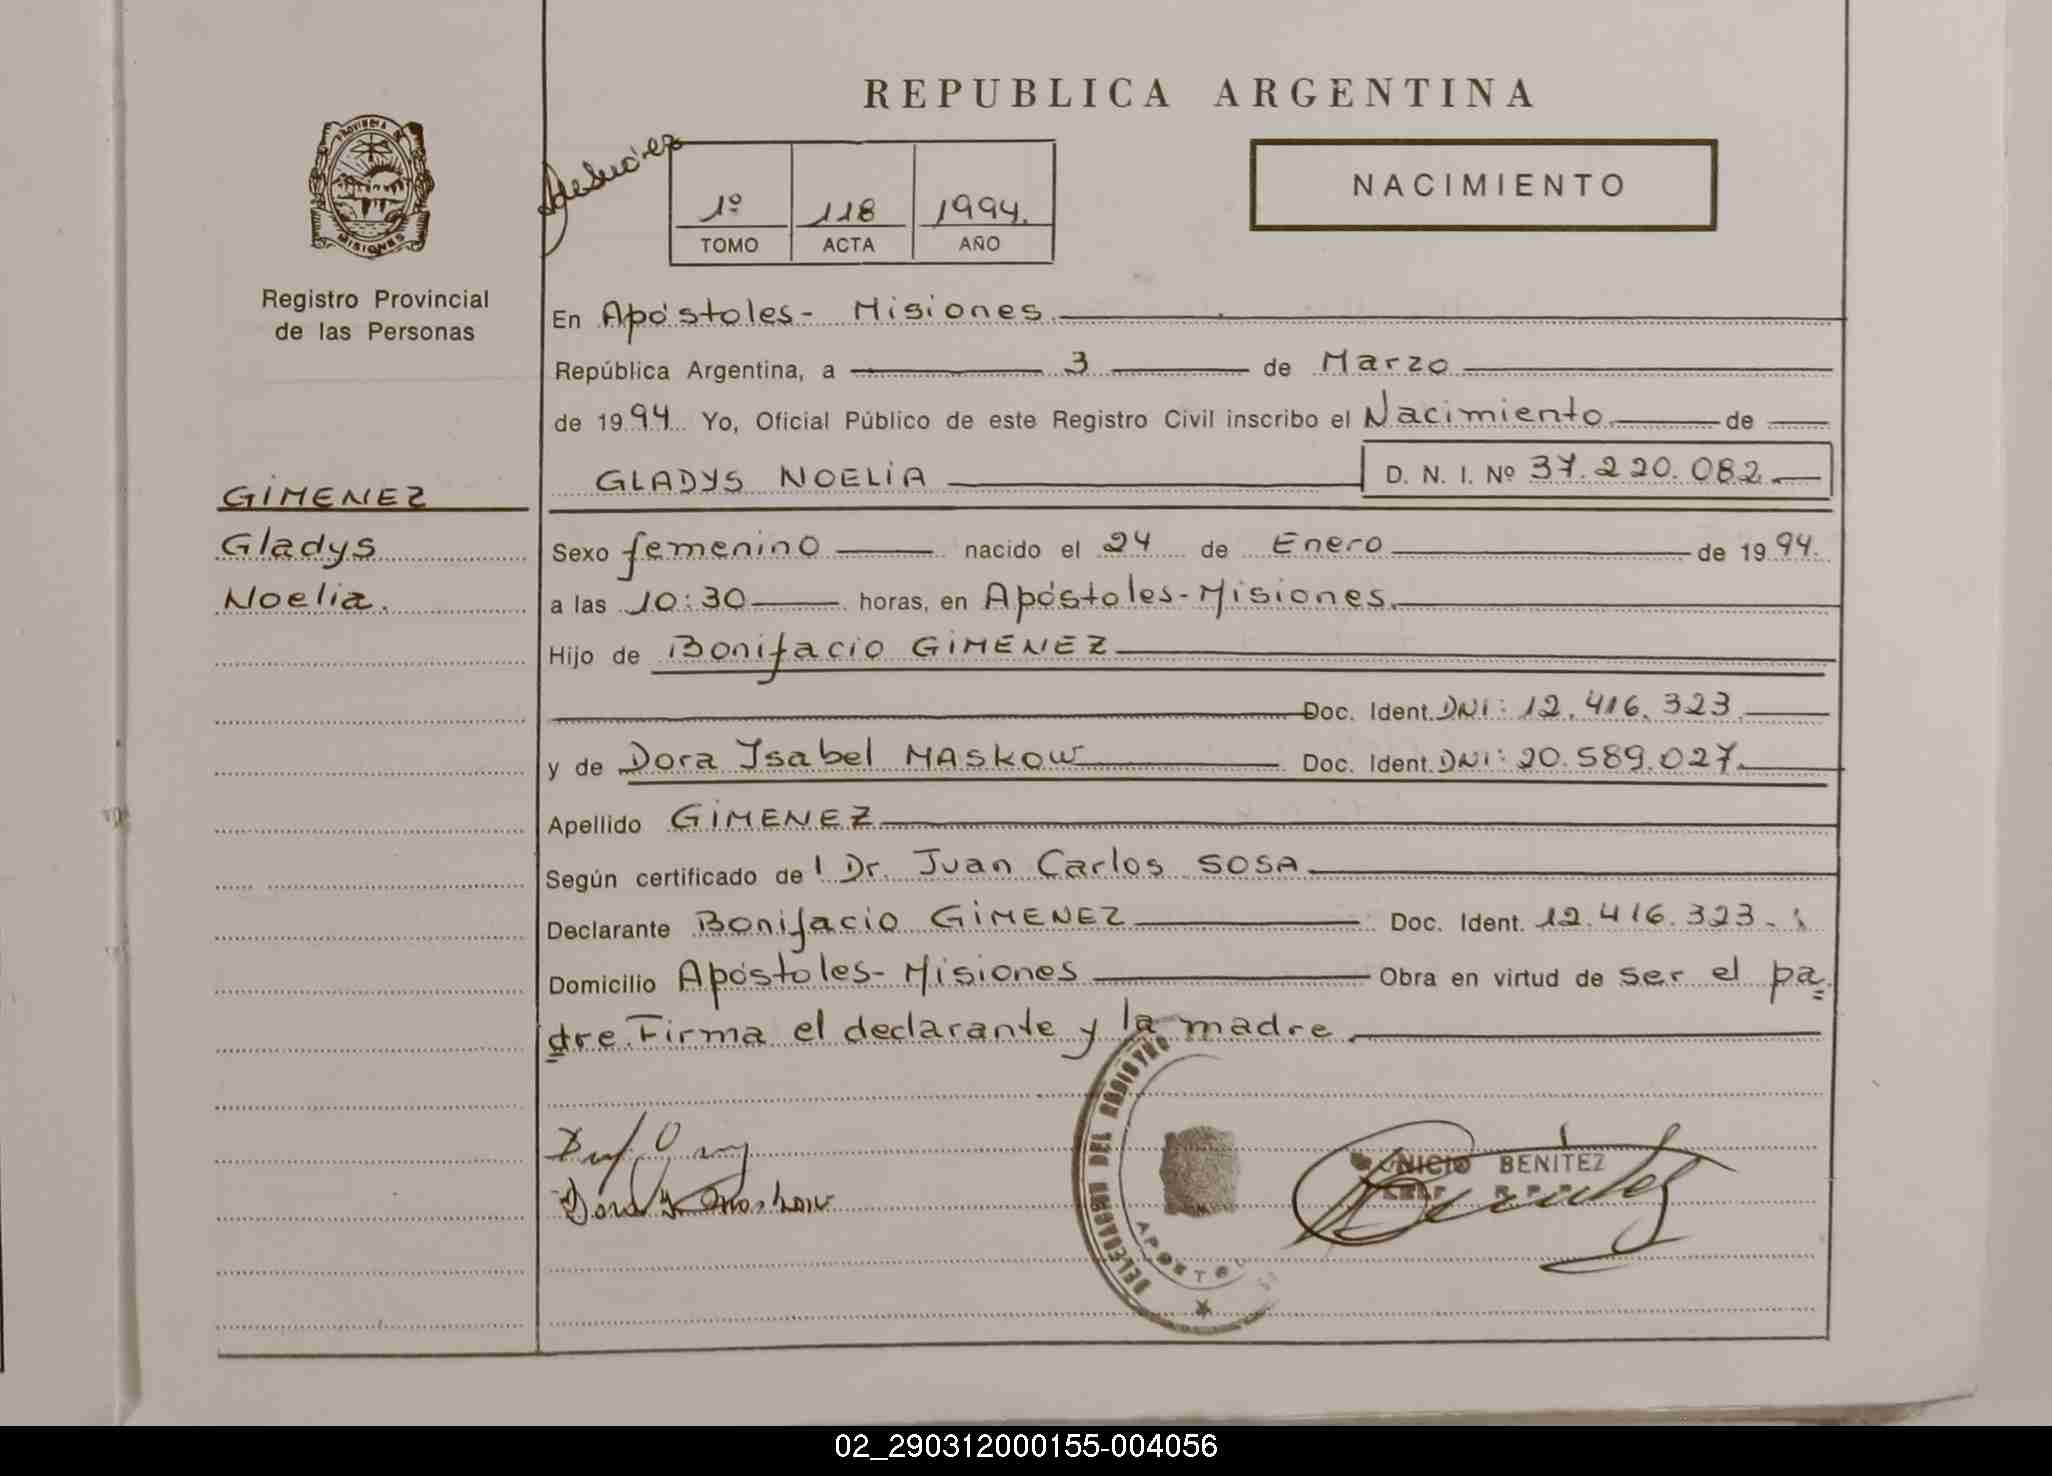 REPUBLICA ARGENTINA
PROVINCIA DE
MISIONES
Registro Provincial
de las Personas
1º 118 1994.
TOMO ACTA AÑO
NACIMIENTO
En Apóstoles- Misiones
República Argentina, a 3 de Marzo
de 1994 Yo, Oficial Público de este Registro Civil inscribo el Nacimiento de
GLADYS NOELIA D. N. I. Nº 37.220.082
GIMENEZ
Gladys
Noelia.
Sexo femenino nacido el 24 de Enero de 1994.
a las 10:30 horas, en Apóstoles-Misiones.
Hijo de Bonifacio GIMENEZ
Doc. Ident. DNI: 12.416.323
y de Dora Isabel MASKOW Doc. Ident. DNI: 20.589.027.
Apellido GIMENEZ
Según certificado del Dr. Juan Carlos SOSA
Declarante Bonifacio GIMENEZ Doc. Ident. 12.416.323.
Domicilio Apóstoles- Misiones Obra en virtud de ser el pa
dre. Firma el declarante y la madre.
DELEGACION DEL REGISTRO
BENITEZ
02_290312000155-004056